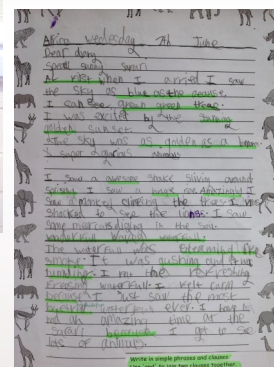 Africa Wednesday 7th June
Dear diary
safari
At first when I arrived I saw
the sky as blue as the
I can see green green trees.
I was excited by the
golden sunset
the sky was as golden as a
super animals
I saw a awesome snake around
I saw a huge Amazingly I
saw a monkey climbing the trees I was
shocked to see the lions. I saw
some digging in the soil.
waterfall
The waterfall was like
smoke. It was gushing and
tumbling. I the refreshing
freezing waterfall. I felt
because I just saw the most
beautiful waterfall ever. I
had an amazing time at the
safari because I got to see
lots of animals.
Write in simple phrases and clauses.
Use 'and' to join two clauses together.